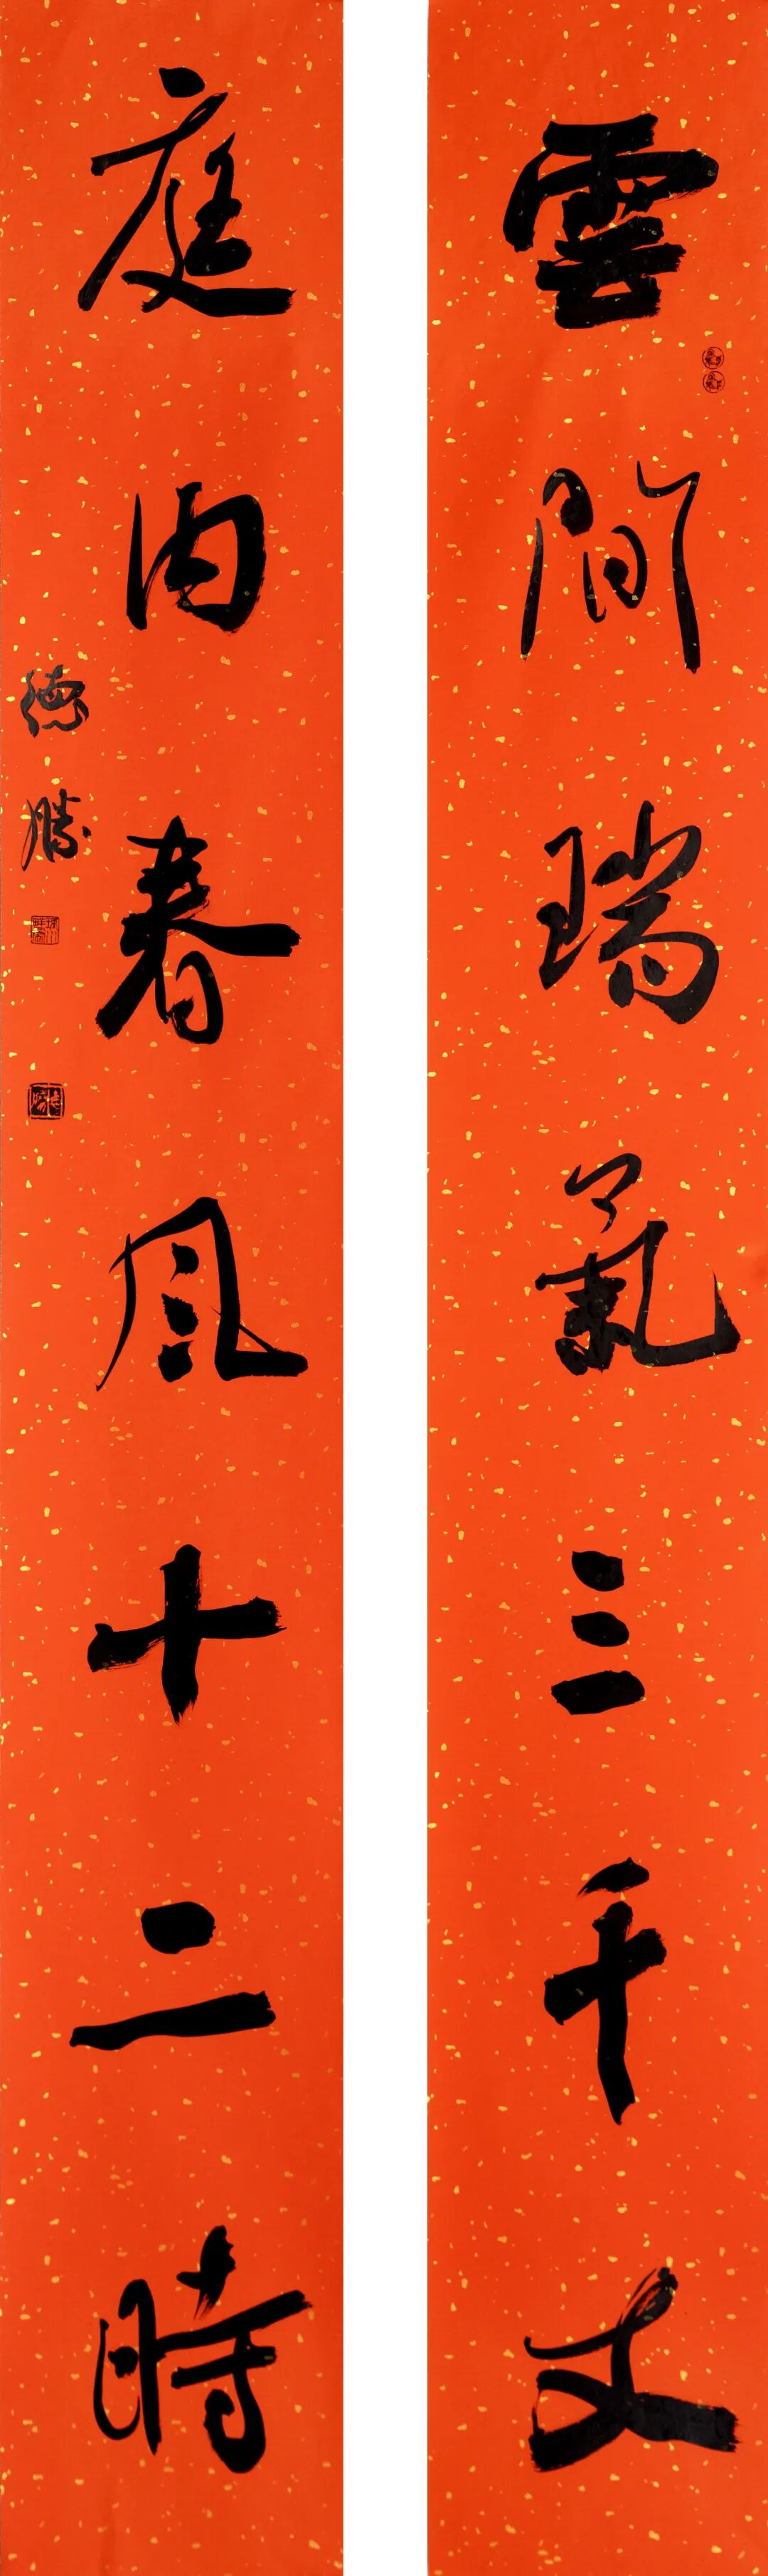 雲間瑞氣三千丈
庭内春風十二時
德勝